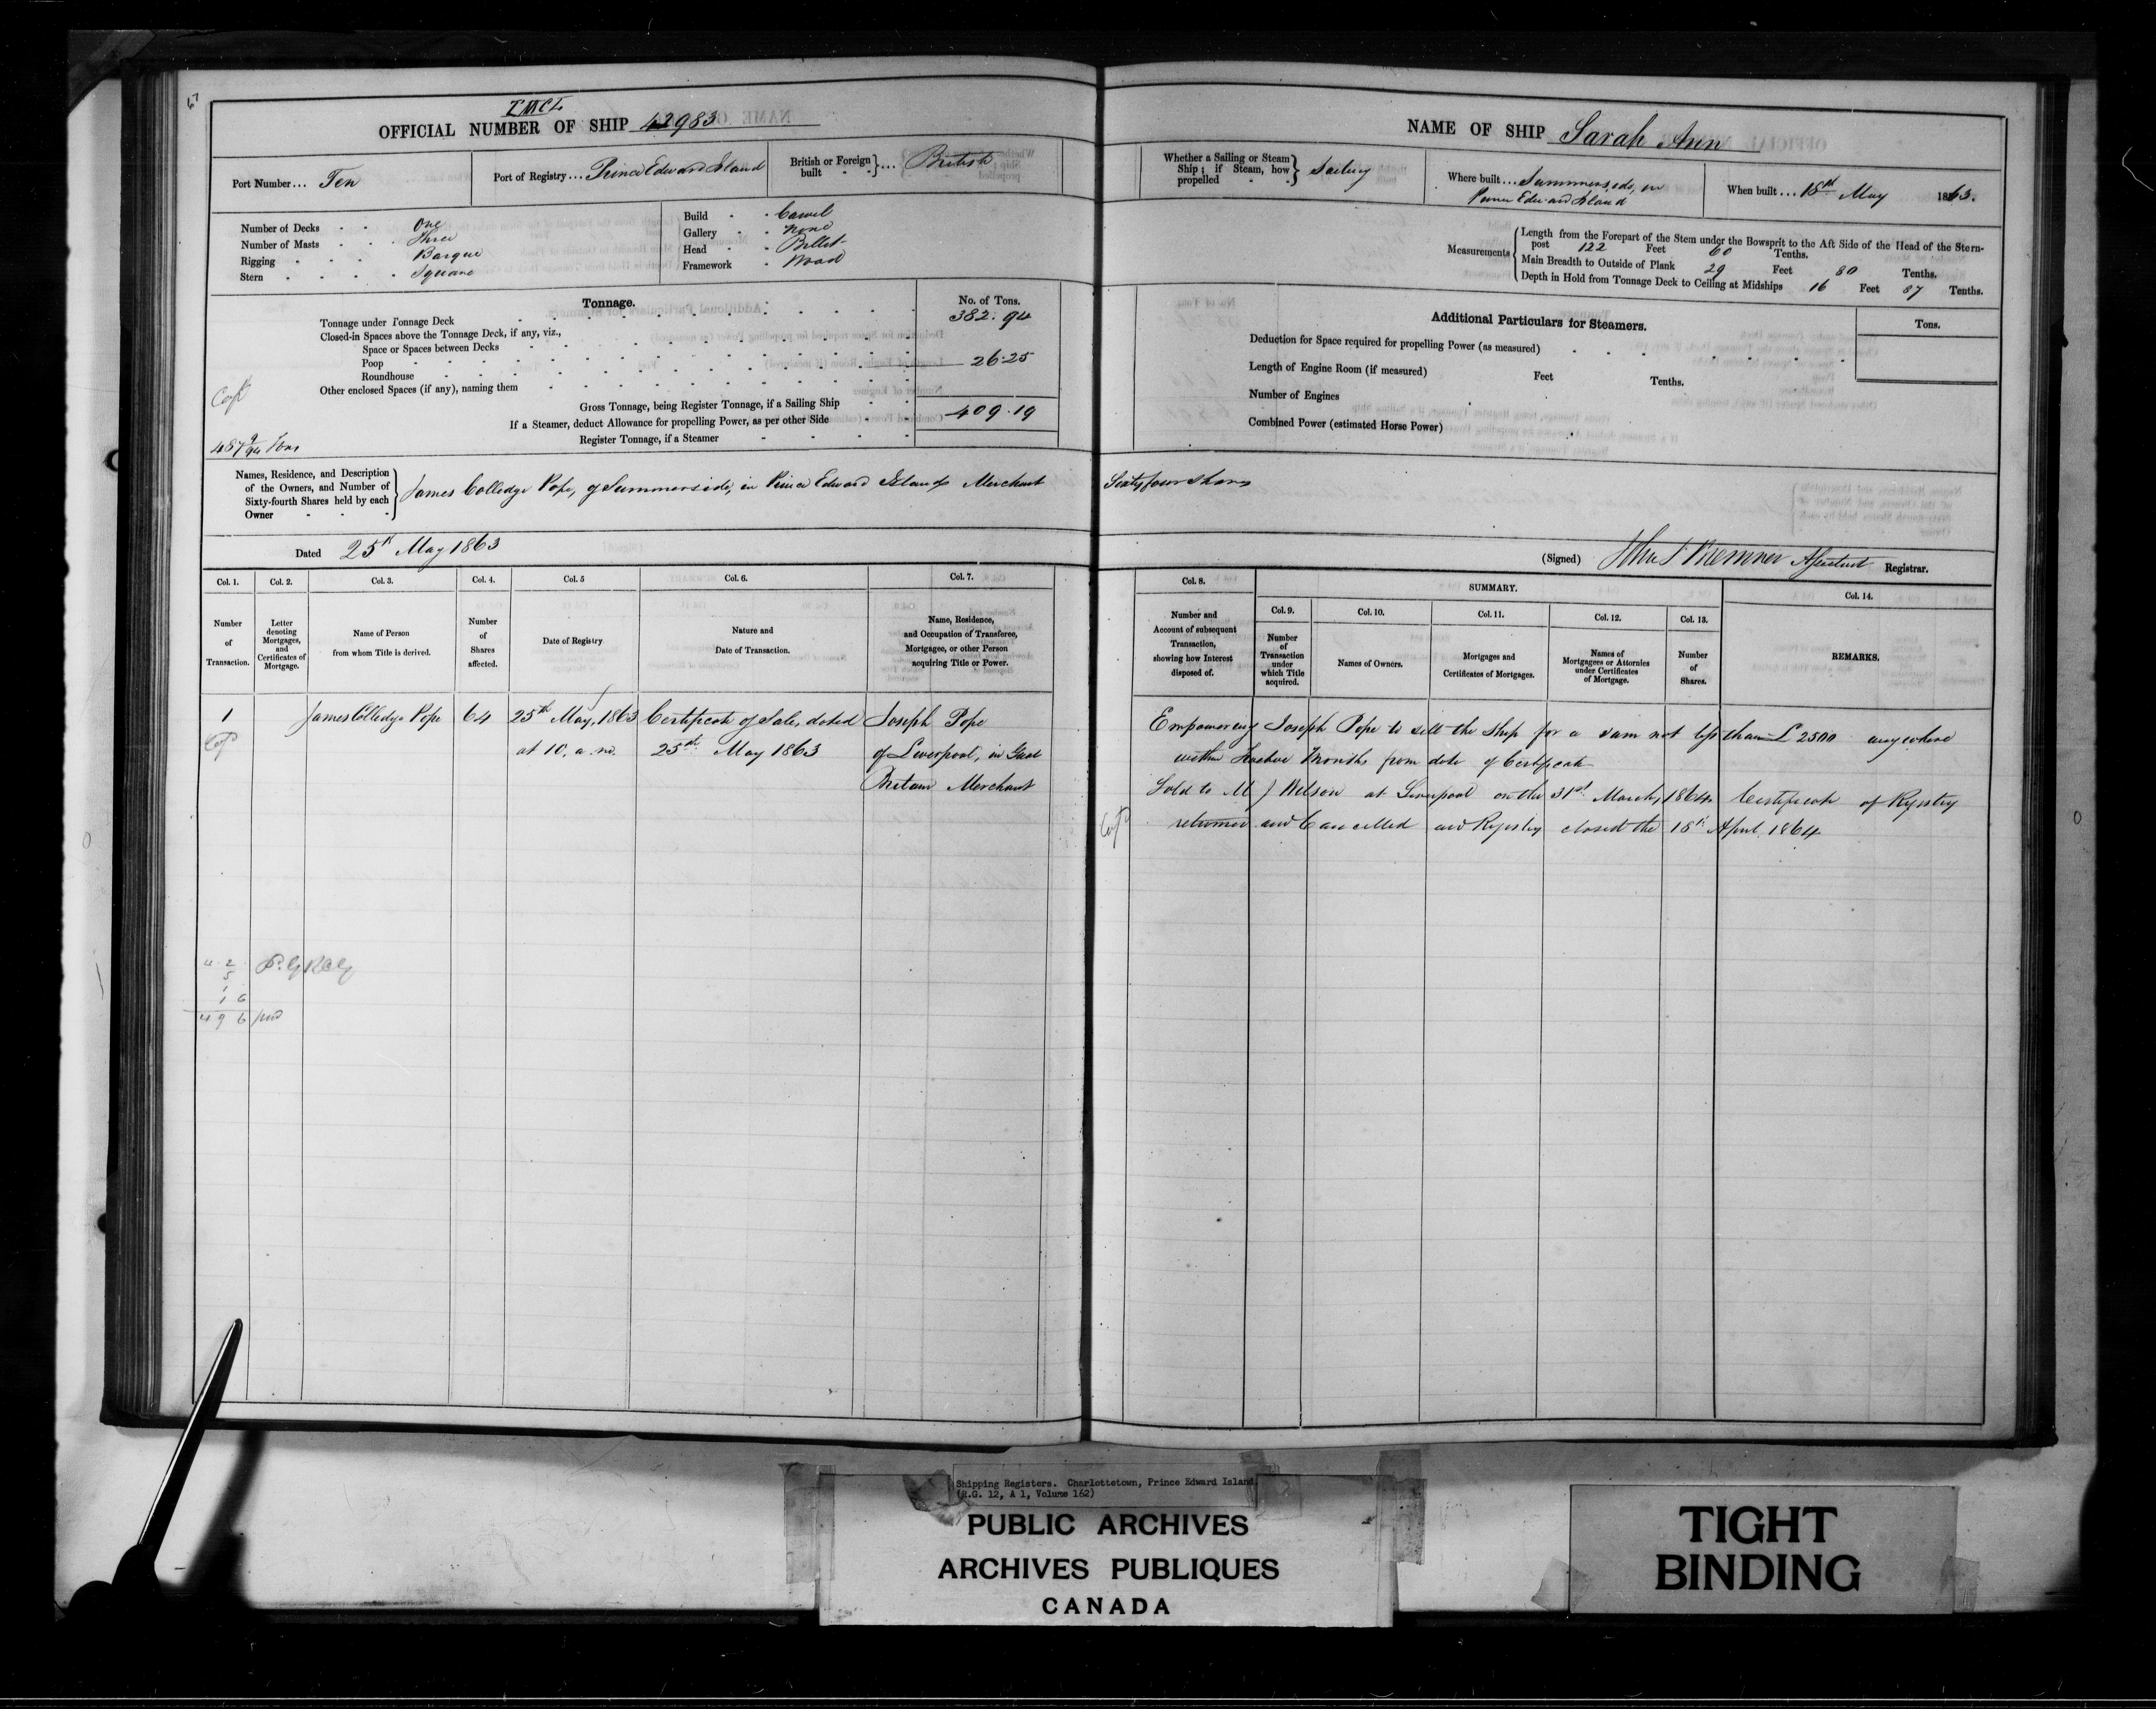 67
OFFICIAL NUMBER OF SHIP 42983
Port Number... Ten
Port of Registry... Prince Edward Island
British or Foreign built } ... British
Number of Decks - - One
Number of Masts - - Three
Rigging - - - Barque
Stern - - - - Square
Build - - Carvel
Gallery - - None
Head - - Billet
Framework - Wood
Tonnage.
No. of Tons.
Tonnage under Tonnage Deck 382.94
Closed-in Spaces above the Tonnage Deck, if any, viz.,
Space or Spaces between Decks
Poop 26.25
Roundhouse
Other enclosed Spaces (if any), naming them
Gross Tonnage, being Register Tonnage, if a Sailing Ship 409.19
If a Steamer, deduct Allowance for propelling Power, as per other Side
Register Tonnage, if a Steamer
Names, Residence, and Description
of the Owners, and Number of
Sixty-fourth Shares held by each
Owner
James Colledge Pope, of Summerside, in Prince Edward Island Merchant
Dated 25th May 1863
Col. 1. Col. 2. Col. 3. Col. 4. Col. 5 Col. 6. Col. 7.
Number of Transaction.
Letter denoting Mortgages, and Certificates of Mortgage.
Name of Person from whom Title is derived.
Number of Shares affected.
Date of Registry
Nature and Date of Transaction.
Name, Residence, and Occupation of Transferee, Mortgagee, or other Person acquiring Title or Power.
1 James Colledge Pope 64 25th May, 1863 Certificate of Sale, dated Joseph Pope
at 10. a.m. 25th May 1863 of Liverpool, in Great
Britain Merchant
4 2
5
1
1 6
4 9 6
NAME OF SHIP Sarah Ann
Whether a Sailing or Steam Ship; if Steam, how propelled } Sailing
Where built... Summerside, in
Prince Edward Island
When built... 18th May 1863.
Measurements
Length from the Forepart of the Stem under the Bowsprit to the Aft Side of the Head of the Stern-
post 122 Feet 60 Tenths.
Main Breadth to Outside of Plank 29 Feet 80 Tenths.
Depth in Hold from Tonnage Deck to Ceiling at Midships 16 Feet 87 Tenths.
Additional Particulars for Steamers.
Tons.
Deduction for Space required for propelling Power (as measured)
Length of Engine Room (if measured) Feet Tenths.
Number of Engines
Combined Power (estimated Horse Power)
Sixty four shares
(Signed) Assistant Registrar.
Col. 8. SUMMARY. Col. 14.
Col. 9. Col. 10. Col. 11. Col. 12. Col. 13.
Number and Account of subsequent Transaction, showing how Interest disposed of.
Number of Transaction under which Title acquired.
Names of Owners.
Mortgages and Certificates of Mortgages.
Names of Mortgagees or Attornies under Certificates of Mortgage.
Number of Shares.
REMARKS.
Empowering Joseph Pope to sell the Ship for a sum not less than £2500 anywhere
within Twelve Months from date of Certificate
Sold to M J Wilson at Liverpool on the 31st March, 1864 Certificate of Registry
returned and Cancelled and Registry closed the 18th April 1864
Shipping Registers. Charlottetown, Prince Edward Island.
(R.G. 12, A 1, Volume 162)
PUBLIC ARCHIVES
ARCHIVES PUBLIQUES
CANADA
TIGHT
BINDING